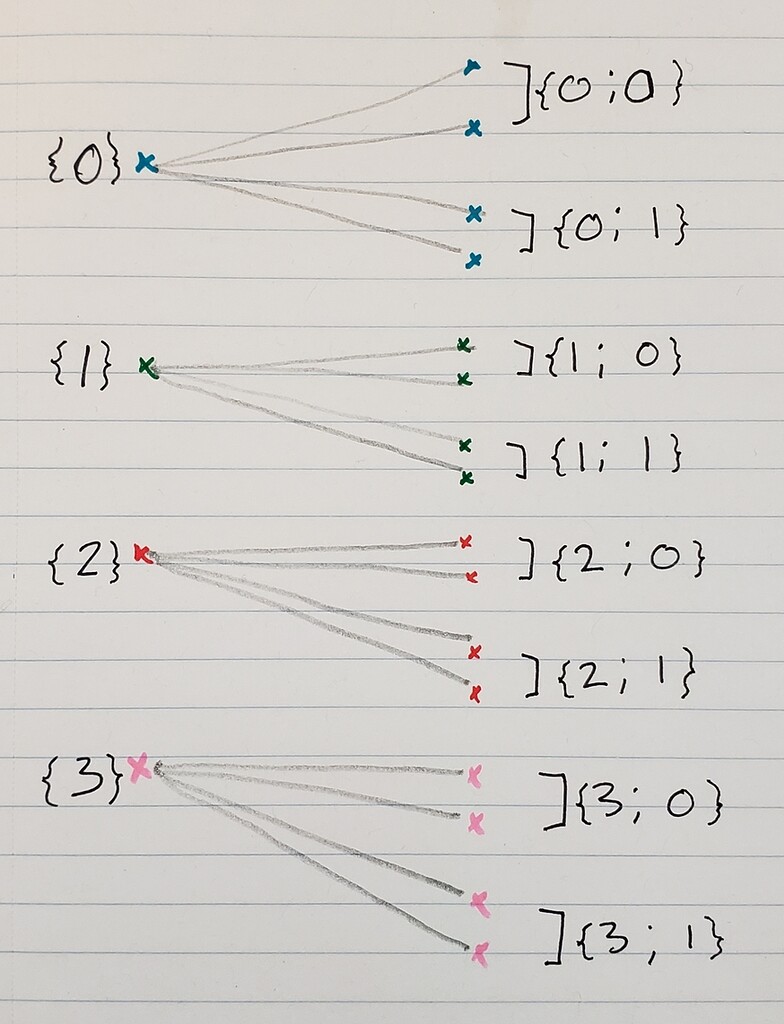 ]{0;0}
{0}
]{0; 1}
{1}
]{1; 0}
]{1; 1}
{2}
]{2; 0}
]{2; 1}
{3}
]{3; 0}
]{3; 1}